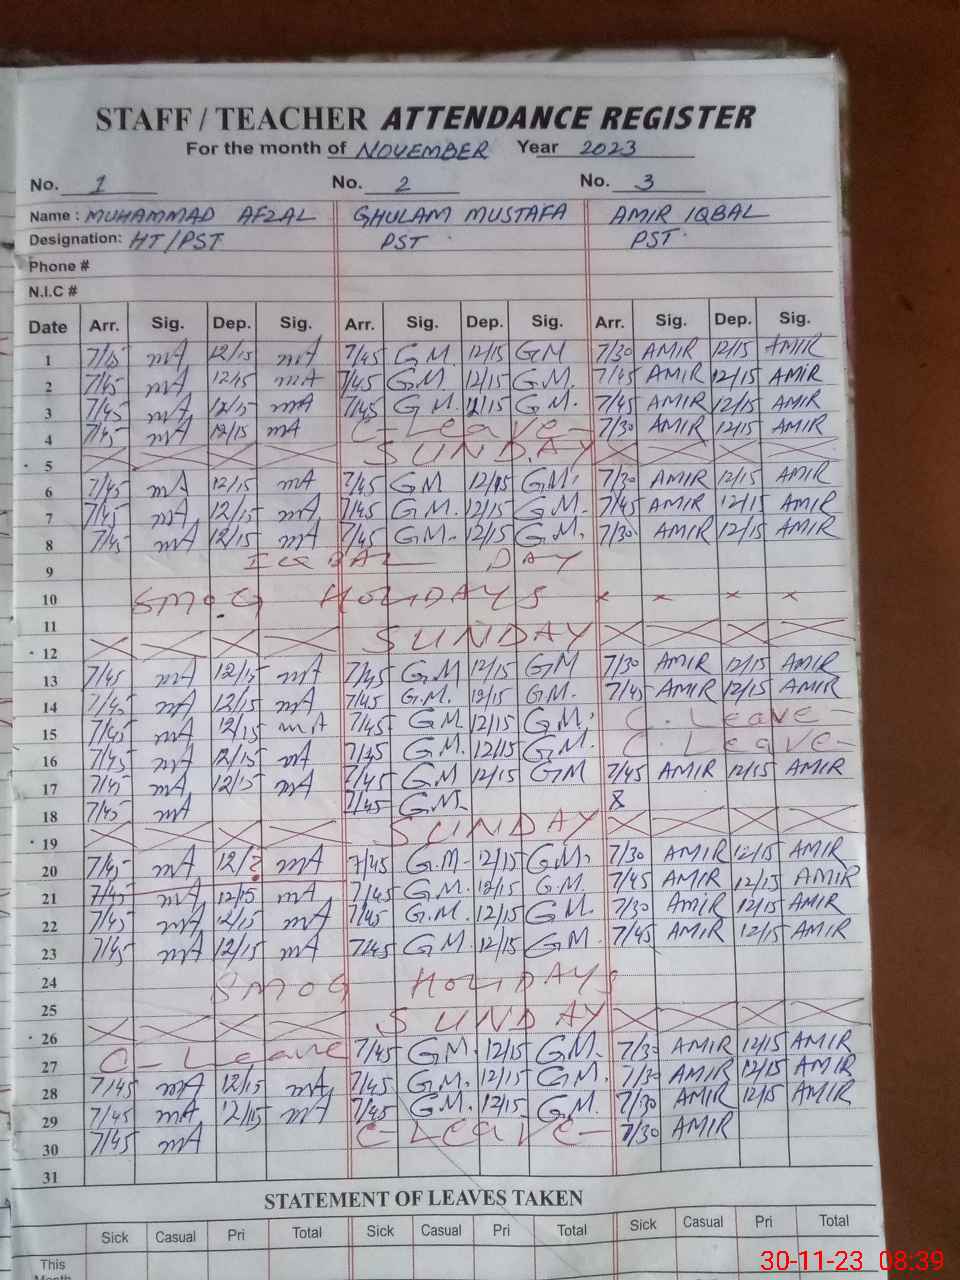 STAFF / TEACHER ATTENDANCE REGISTER
For the month of NOVEMBER Year 2023
No. 1 No. 2 No. 3
Name : MUHAMMAD AFZAL GHULAM MUSTAFA AMIR IQBAL
Designation: HT/PST PST PST
Phone #
N.I.C #
Date Arr. Sig. Dep. Sig. Arr. Sig. Dep. Sig. Arr. Sig. Dep. Sig.
1 7/45 mA 12/15 mA 7/45 G M. 12/15 G M 7/30 AMIR 12/15 AMIR
2 7/45 mA 12/15 mA 7/45 G M. 12/15 G M. 7/45 AMIR 12/15 AMIR
3 7/45 mA 12/15 mA 7/45 G M. 12/15 G M. 7/45 AMIR 12/15 AMIR
4 7/45 mA 12/15 mA C-Leave- 7/30 AMIR 12/15 AMIR
5 SUNDAY
6 7/45 mA 12/15 mA 7/45 G M 12/15 G M. 7/30 AMIR 12/15 AMIR
7 7/45 mA 12/15 mA 7/45 G M. 12/15 G M. 7/45 AMIR 12/15 AMIR
8 7/45 mA 12/15 mA 7/45 G M. 12/15 G M. 7/30 AMIR 12/15 AMIR
9 IQBAL DAY
10 SMOG HOLIDAYS x x x x
11
12 SUNDAY
13 7/45 mA 12/15 mA 7/45 G M 12/15 G M 7/30 AMIR 12/15 AMIR
14 7/45 mA 12/15 mA 7/45 G.M. 12/15 G M. 7/45 AMIR 12/15 AMIR
15 7/45 mA 12/15 mA 7/45 G M. 12/15 G M. C. Leave-
16 7/45 mA 12/15 mA 7/45 G M. 12/15 G M. C. Leave-
17 7/45 mA 12/15 mA 7/45 G M 12/15 G M 7/45 AMIR 12/15 AMIR
18 7/45 mA 7/45 G M.
19 SUNDAY
20 7/45 mA 12/? mA 7/45 G.M. 12/15 G M. 7/30 AMIR 12/15 AMIR
21 7/45 mA 12/15 mA 7/45 G M. 12/15 G.M. 7/45 AMIR 12/15 AMIR
22 7/45 mA 12/15 mA 7/45 G.M. 12/15 G M. 7/30 AMIR 12/15 AMIR
23 7/45 mA 12/15 mA 7/45 G M. 12/15 G M. 7/45 AMIR 12/15 AMIR
24 SMOG HOLIDAYS
25
26 SUNDAY
27 C-Leave 7/45 G M. 12/15 G M. 7/30 AMIR 12/15 AMIR
28 7/45 mA 12/15 mA 7/45 G M. 12/15 G M. 7/30 AMIR 12/15 AMIR
29 7/45 mA 12/15 mA 7/45 G M. 12/15 G M. 7/30 AMIR 12/15 AMIR
30 7/45 mA C-Leave- 7/30 AMIR
31
STATEMENT OF LEAVES TAKEN
Sick Casual Pri Total Sick Casual Pri Total Sick Casual Pri Total
This
Month
30-11-23 08:39